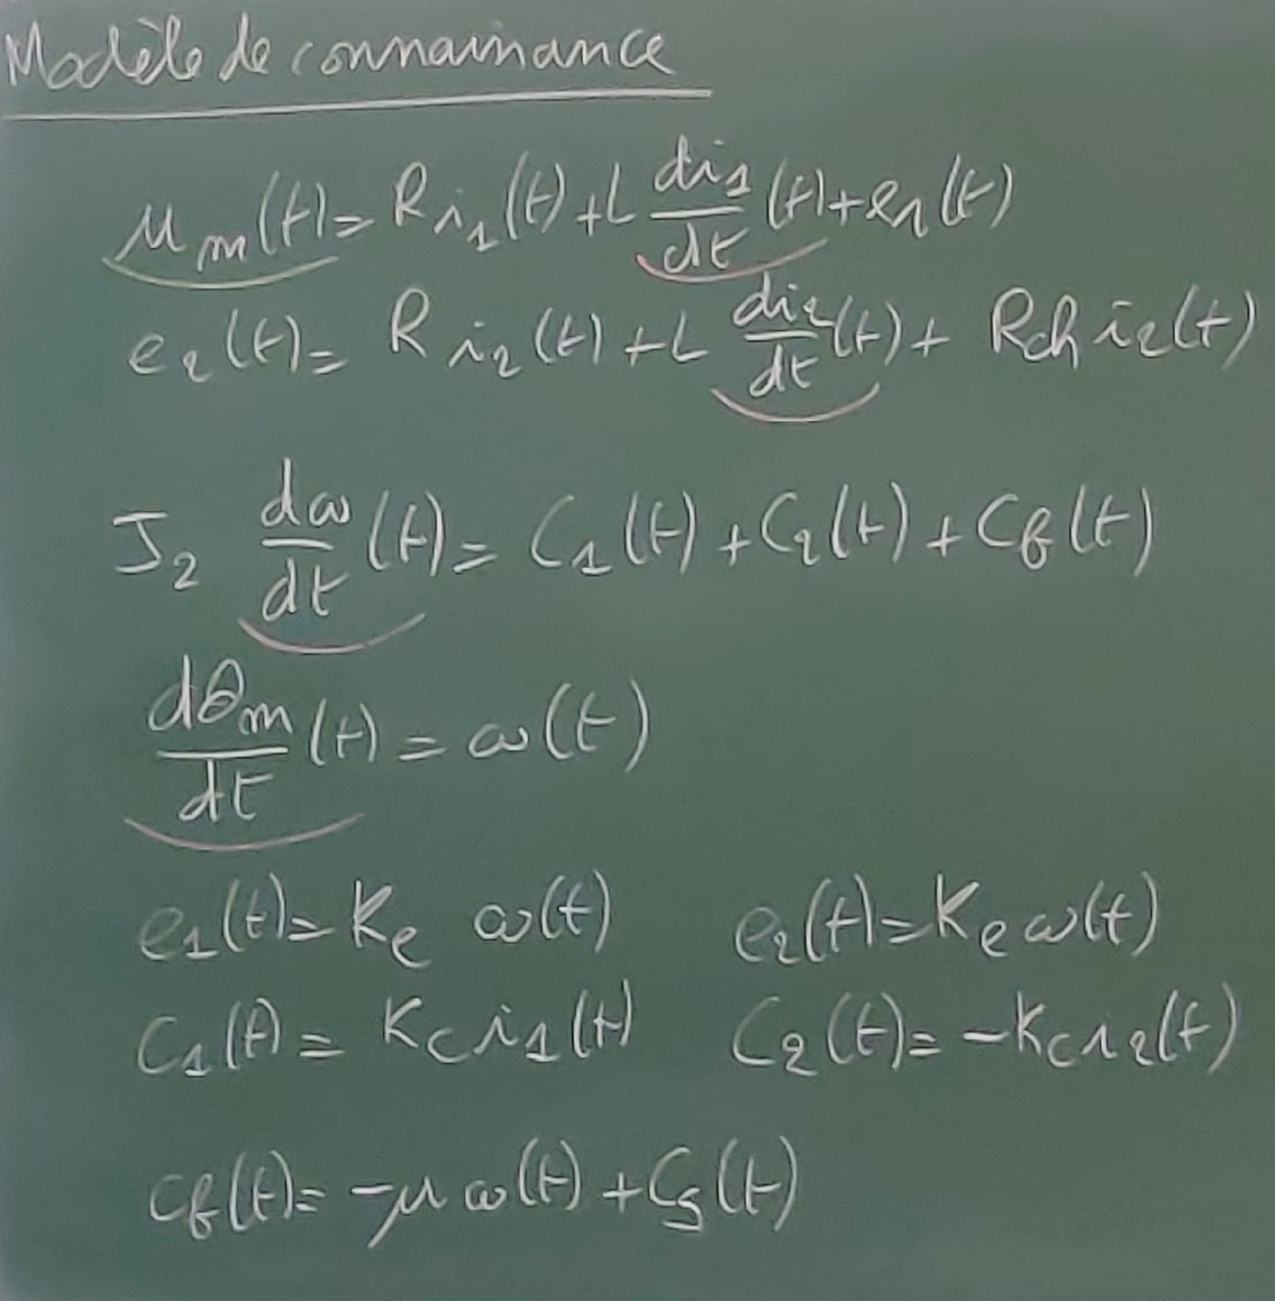 Modèle de connaissance
u_m(t) = R i_1(t) + L di_1/dt (t) + e_1(t)
e_2(t) = R i_2(t) + L di_2/dt (t) + Rch i_2(t)
J_2 dω/dt (t) = C_1(t) + C_2(t) + C_f(t)
dθ_m/dt (t) = ω(t)
e_1(t) = K_e ω(t) e_2(t) = K_e ω(t)
C_1(t) = K_c i_1(t) C_2(t) = -K_c i_2(t)
C_f(t) = -μ ω(t) + C_s(t)